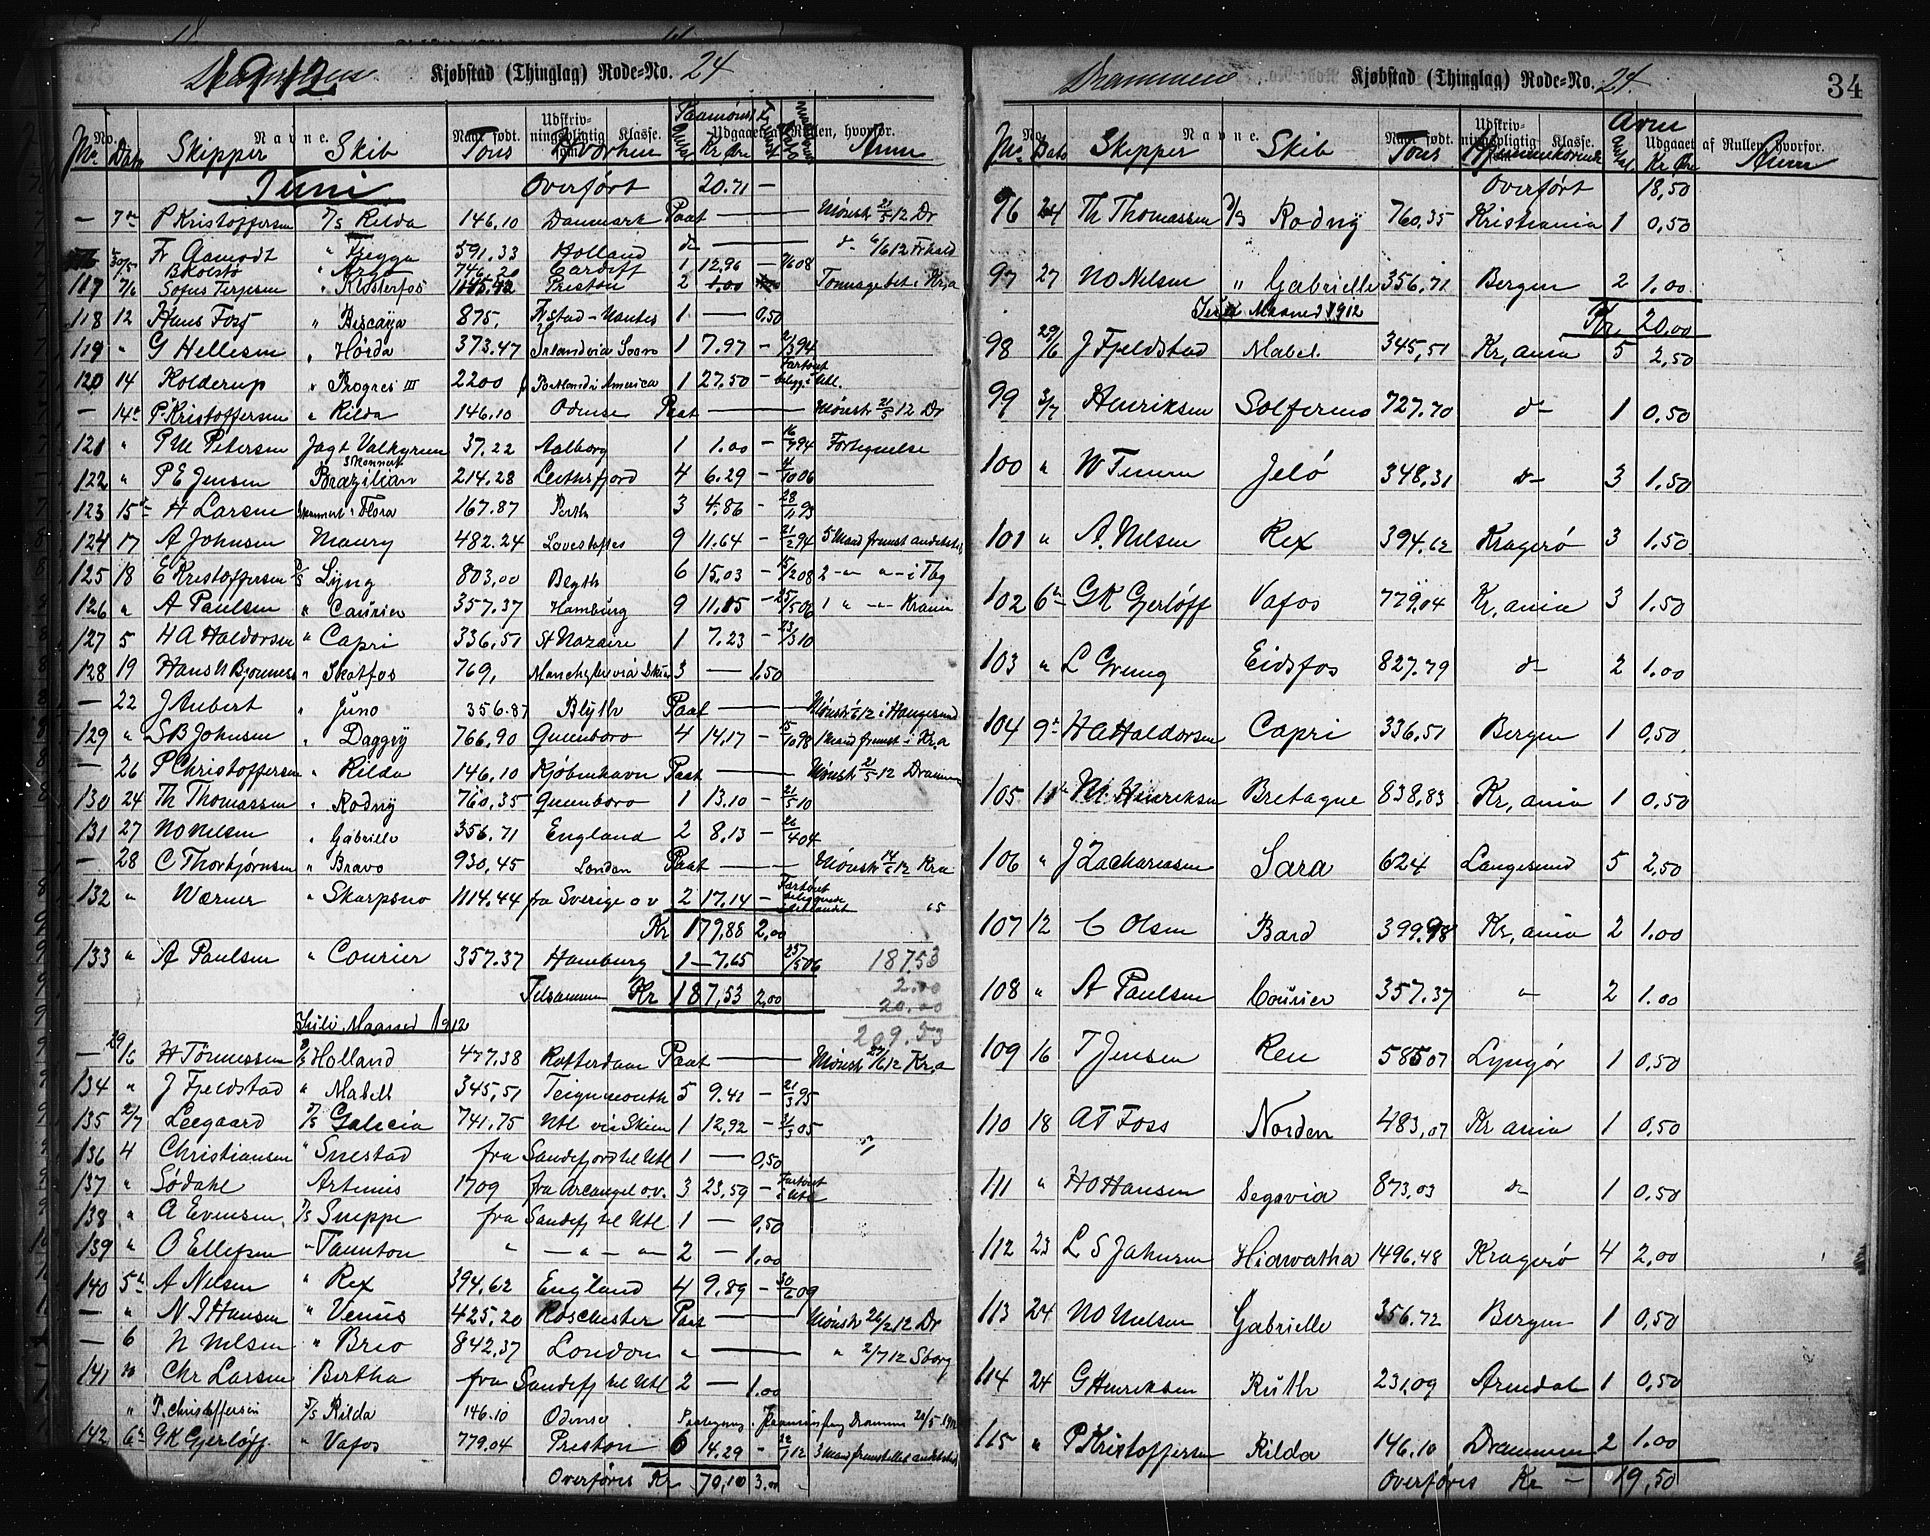 1912 Kjøbstad (Thinglag) Rode-No. 24
No. Navne. Naar født. Udskrivningspligtig Klasse. Udgaaet af Rullen, hvorfor.
No Dato Skipper Skib Tons Hvorhen Kr Øre Anm
Juni Overført 20.71 —
— 7de P Kristoffersen D/S Rilda 146.10 Danmark Paat — Mønstr 21/5 12 Dr
Fr Aamodt " Fjeggu 591.33 Holland d — d 6/6 12 Frhald
30/5 B Kolstø " Argo 746.20 Cardiff 1 12.96 — 7/6 08
117 7/6 Sofus Terjesen " Klosterfos 1145.42 Preston 2 1.00 Tonnagebet. i Kr,a
118 12 Hans Foss " Biscaya 875, Fstad - Nantes 1 — 0,50
119 " G Hellesen " Hørda 373.47 Irland via Soon 1 7.97 — 94
120 14 Kolderup " Progres III 2200 Portland i America 1 27.50 — Fartøiet beligg. i Utl.
— 14de P. Kristoffersen " Rilda 146.10 Odense Paat — Mønstr 21/5 12 Dr
121 " P M Petersen Jagt Valkyrien 37.22 Aalborg 1 1.00 — 16/7 94 Fortegnelse
122 " P E Jensen Skonnert Brazilian 214.28 Leithsfjord 4 6.29 — 10 06
123 15de H Larsen Skonnert " Flora 167.87 Perth 3 4.86 — 28/11 93
124 17 A Johnsen Maury 482.24 Lovestoftes 9 11.64 — 21/2 94 5 Mand fremst andetsteds
125 18 E Kristoffersen D/S Lyng 803,00 Blyth 6 15.03 — 15/12 08 2 — " " — i Tbg
126 " A Paulsen " Courier 357.37 Hamburg 9 11.15 — 25/5 06 1 " — " — Krania
127 5 H A Haldorsen " Capri 336,51 St Nazaire 1 7.23 — 23/3 10
128 19 Hans N Bjonness " Skotfos 769, Manchester via Skien 3 — 1,50
— 22 J Aubert " Juno 356.87 Blyth Paat — Mønstr 12 i Haugesund
129 " S B Johnsen " Daggry 766,90 Queenboro 4 14,17 — 15/10 98 1 Mand fremst i Kr,a
— 26 P Christoffersen " Rilda 146.10 Kjøbenhavn Paat — Mønstr 21/5 12 Drammen
130 24 Th Thomassen " Rodny 760,35 Queenboro 1 13.10 — 21/5 10
131 27 N O Nelsen " Gabrielle 356.71 England 2 8,13 — 26/4 04
— 28 C Thorbjørnsen " Bravo 930,45 London Paat — Mønstr 14/6 12 Kra
132 " Wærner " Skarpsno 1114.44 fra Sverige o v 2 17.14 — Fartøiet beliggende i Utlandet
Kr 179,88 2,00
133 " A Paulsen " Courier 357.37 Hamburg 1 — 7.65 25/5 06 187,53
Tilsammen Kr 187,53 2,00 2.00
20.00
Juli Maaned 1912 209.53
— 29/6 H Tønnessen D/S Holland 477.38 Rotterdam Paat — Mønstr 27/6 12 Kr,a
134 " J Fjeldstad " Mabell 345,51 Teignmouth 5 9.41 — 21/3 95
135 2/7 Leegaard D/S Galicia 741,75 Utl via Skien 1 12,92 — 31/3 05
136 4 Christiansen " Snestad fra Sandefjord til Utl 1 — 0,50
137 " Sødahl Artemis 1709 fra Arcangel o.v. 3 23,59 — Fartøiet i Utl
138 " A Evensen D/S Sneppe fra Sandefj til Utl 1 — 0,50
139 " O Ellefsen " Taunton " — " — " 2 — 1.00
140 5te A Nelsen " Rex 394,62 England 4 9.89 — 30/6 09
— " N J Hansen " Venus 425,20 Roschester Paat — Mønstr 26/2 12 Dr
— 6 N Nelsen " Brio 842,37 London " — " 2/7 12 Sborg
141 " Chr Larsen Bertha fra Sandefj til Utl 2 — 1.00
" P. Christoffersen D/S Rilda 146.10 Odense Paategning. Paamønstring Drammen 21/5 1912
142 6te G K Gjerløff " Vafos 779.04 Preston 6 14.29 — 22/7 12 3 Mand fremstillet andetsteds
Overføres Kr 70,10 3.00
Drammens Kjøbstad (Thinglag) Rode-No. 24. 34
No. Navne. Naar født. Udskrivningspligtig Klasse. Udgaaet af Rullen, hvorfor.
No Dato Skipper Skib Tons Hjemmehørende Kr Øre Anm
Overført 18,50
96 24 Th Thomassen D/S Rodny 760,35 Kristiania 1 0,50
97 27 N O Nelsen " Gabrielle 356,71 Bergen 2 1.00
Juli Maaned 1912 Kr 20,00
98 29/6 J Fjeldstad Mabel. 345,51 Kr,ania 5 2,50
99 3/7 Henriksen Solferino 727.70 d— 1 0,50
100 " W Timm Jelø 348,31 d— 3 1.50
101 " A. Nelsen Rex 394,62 Kragerø 3 1.50
102 6te G K Gjerløff Vafos 779,04 Kr,ania 3 1.50
103 " L Greung Eidsfos 827.79 d— 2 1.00
104 9de H A Haldorsen Capri 336.51 Bergen 1 0,50
105 11te M. Henriksen Bretagne 838,83 Kr,ania 1 0,50
106 " J Zachariasen Sara 624 Langesund 5 2,50
107 12 C Olsen Bard 399.98 Kr,ania 2 1.00
108 " A Paulsen Courier 357.37 " 2 1.00
109 16 T Jensen Ren 585 07 Lyngør 1 0,50
110 18 A T Foss Norden 483,07 Kr ania 1 0,50
111 " H O Hansen Segovia 873,03 d— 1 0,50
112 23 L S Johnsen Hiawatha 1496.48 Kragerø 4 2,00
113 24 N O Nielsen Gabrielle 356.72 Bergen 1 0,50
114 24 G Henriksen Ruth 231,09 Arendal 1 0,50
115 " P Kristoffersen Rilda 146.10 Drammen 2 1.00
Overføres Kr — 19,50